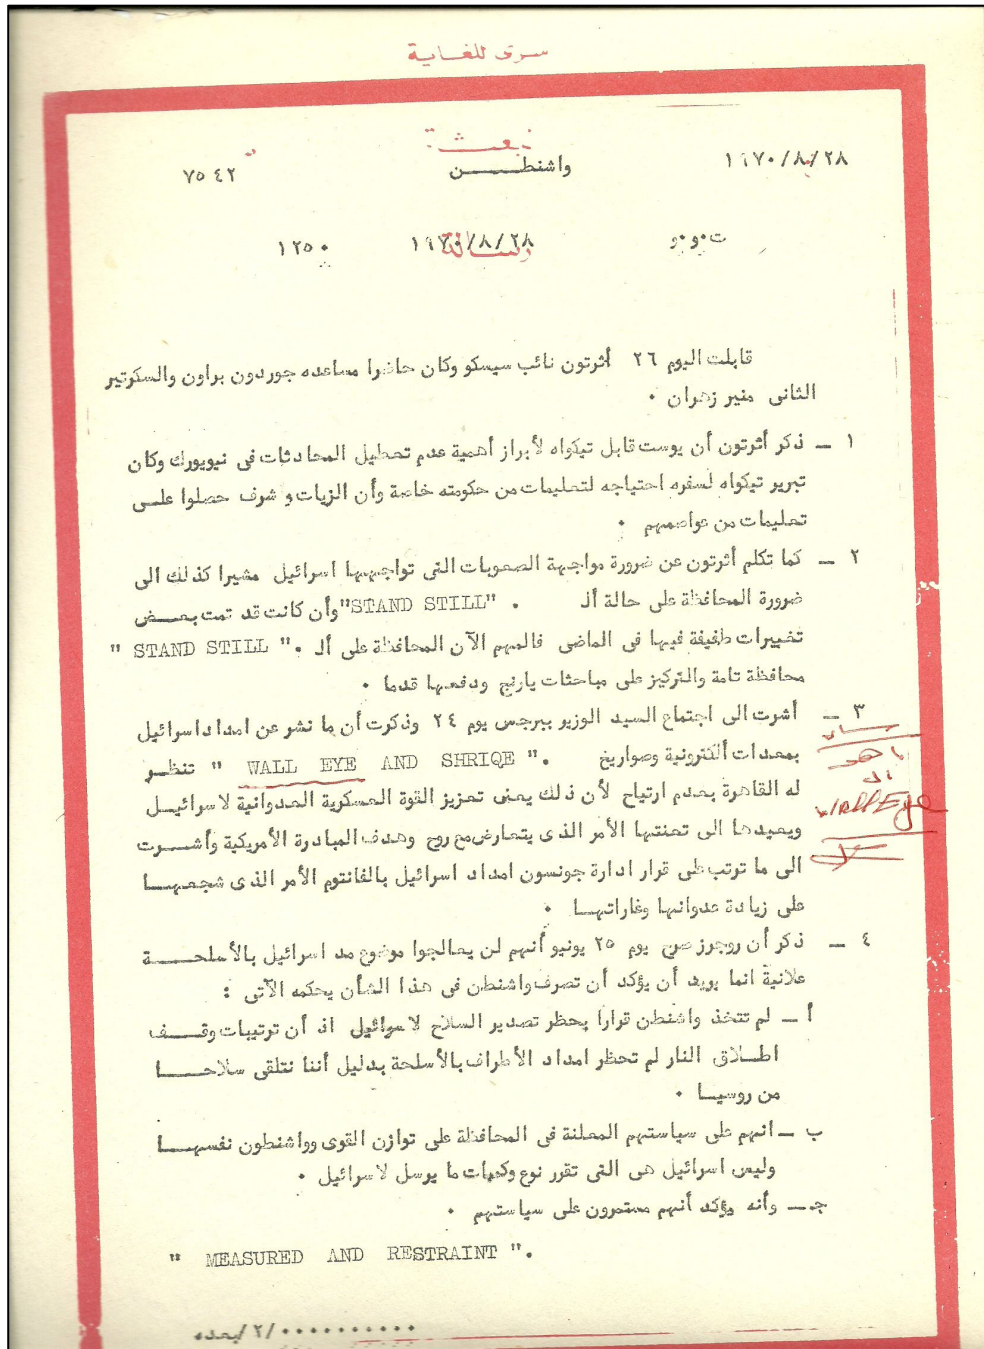 سرى للغاية
بعثة
١٩٧٠/٨/٢٨ واشنطـــــن ٧٥٤٢
ت٠و٠و ١٩٧٠/٨/٢٨ ١٢٥٠
رسالة
قابلت اليوم ٢٦ أثرتون نائب سيسكو وكان حاضرا مساعده جوردون براون والسكرتير
الثانى منير زهران ٠
١ ــ ذكر أثرتون أن يوست قابل تيكواه لأبراز أهمية عدم تعطيل المحادثات فى نيويورك وكان
تبرير تيكواه لسفره احتياجه لتعليمات من حكومته خاصة وأن الزيات و شرف حصلوا علــى
تعليمات من عواصمهم ٠
٢ ــ كما تكلم أثرتون عن ضرورة مواجهة الصعوبات التى تواجهها اسرائيل مشيرا كذلك الى
ضرورة المحافظة على حالة ألـ . "STAND STILL" وأن كانت قد تمت بعــض
تغييرات طفيفة فيها فى الماضى فالمهم الآن المحافظة على ألـ ." STAND STILL "
محافظة تامة والتركيز على مباحثات يارنج ودفعها قدما ٠
٣ ــ أشرت الى اجتماع السيد الوزير ببرجس يوم ٢٤ وذكرت أن ما نشر عن امداد اسرائيل
بمعدات ألكترونية وصواريخ ." WALL EYE AND SHRIQE " تنظــر
له القاهرة بعدم ارتياح لأن ذلك يعنى تعزيز القوة العسكرية العدوانية لاسرائيــل
ويعيدها الى تعنتها الأمر الذى يتعارض مع روح وهدف المبادرة الأمريكية وأشـــرت
الى ما ترتب على قرار ادارة جونسون امداد اسرائيل بالفانتوم الأمر الذى شجعهـــا
على زيادة عدوانها وغاراتهــا ٠
ما هو
ال
Wall Eye
٤ ــ ذكر أن روجرز صرح يوم ٢٥ يونيو أنهم لن يعالجوا موضوع مد اسرائيل بالأسلحـــــة
علانية انما يريد أن يؤكد أن تصرف واشنطن فى هذا الشأن يحكمه الآتى :
أ ــ لم تتخذ واشنطن قرارا بحظر تصدير السلاح لاسرائيل اذ أن ترتيبات وقــــف
اطــلاق النار لم تحظر امداد الأطراف بالأسلحة بدليل أننا نتلقى سلاحــــا
من روسيــا ٠
ب ــ انهم على سياستهم المعلنة فى المحافظة على توازن القوى وواشنطون نفسهـــا
وليس اسرائيل هى التى تقرر نوع وكميات ما يرسل لاسرائيل ٠
جـ ــ وأنه يؤكد أنهم مستمرون على سياستهم ٠
" MEASURED AND RESTRAINT ".
٠٠٠٠٠٠٠٠٠٠/٢/بعده